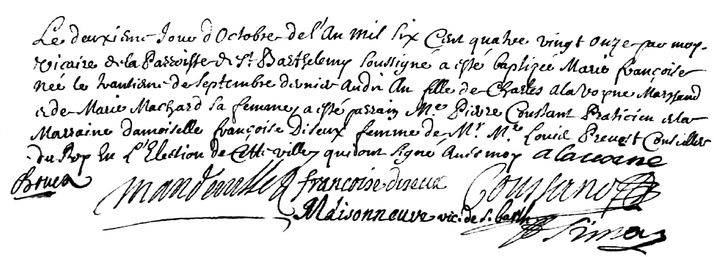 Le deuxiene Jour d'Octobre de l'An mil six Cent quatre vingt onze par moy
Vicaire de la Parroisse de St Barthelemy Soussigné a esté baptizée Marie françoise
née le trantiene de Septembre dernier Audit An fille de Charles alavoyne Marchand
et de Marie Machard sa femme, a esté parrain Me Pierre Coustant Praticien et la
Marraine damoiselle françoise Diseux femme de Mr Me Louis Prevost Conseiller
du Roy En l'Election de Cette ville, qui ont signé Avec moy alavoine
françoise diseux Coustant
Maisonneuve vic. de St